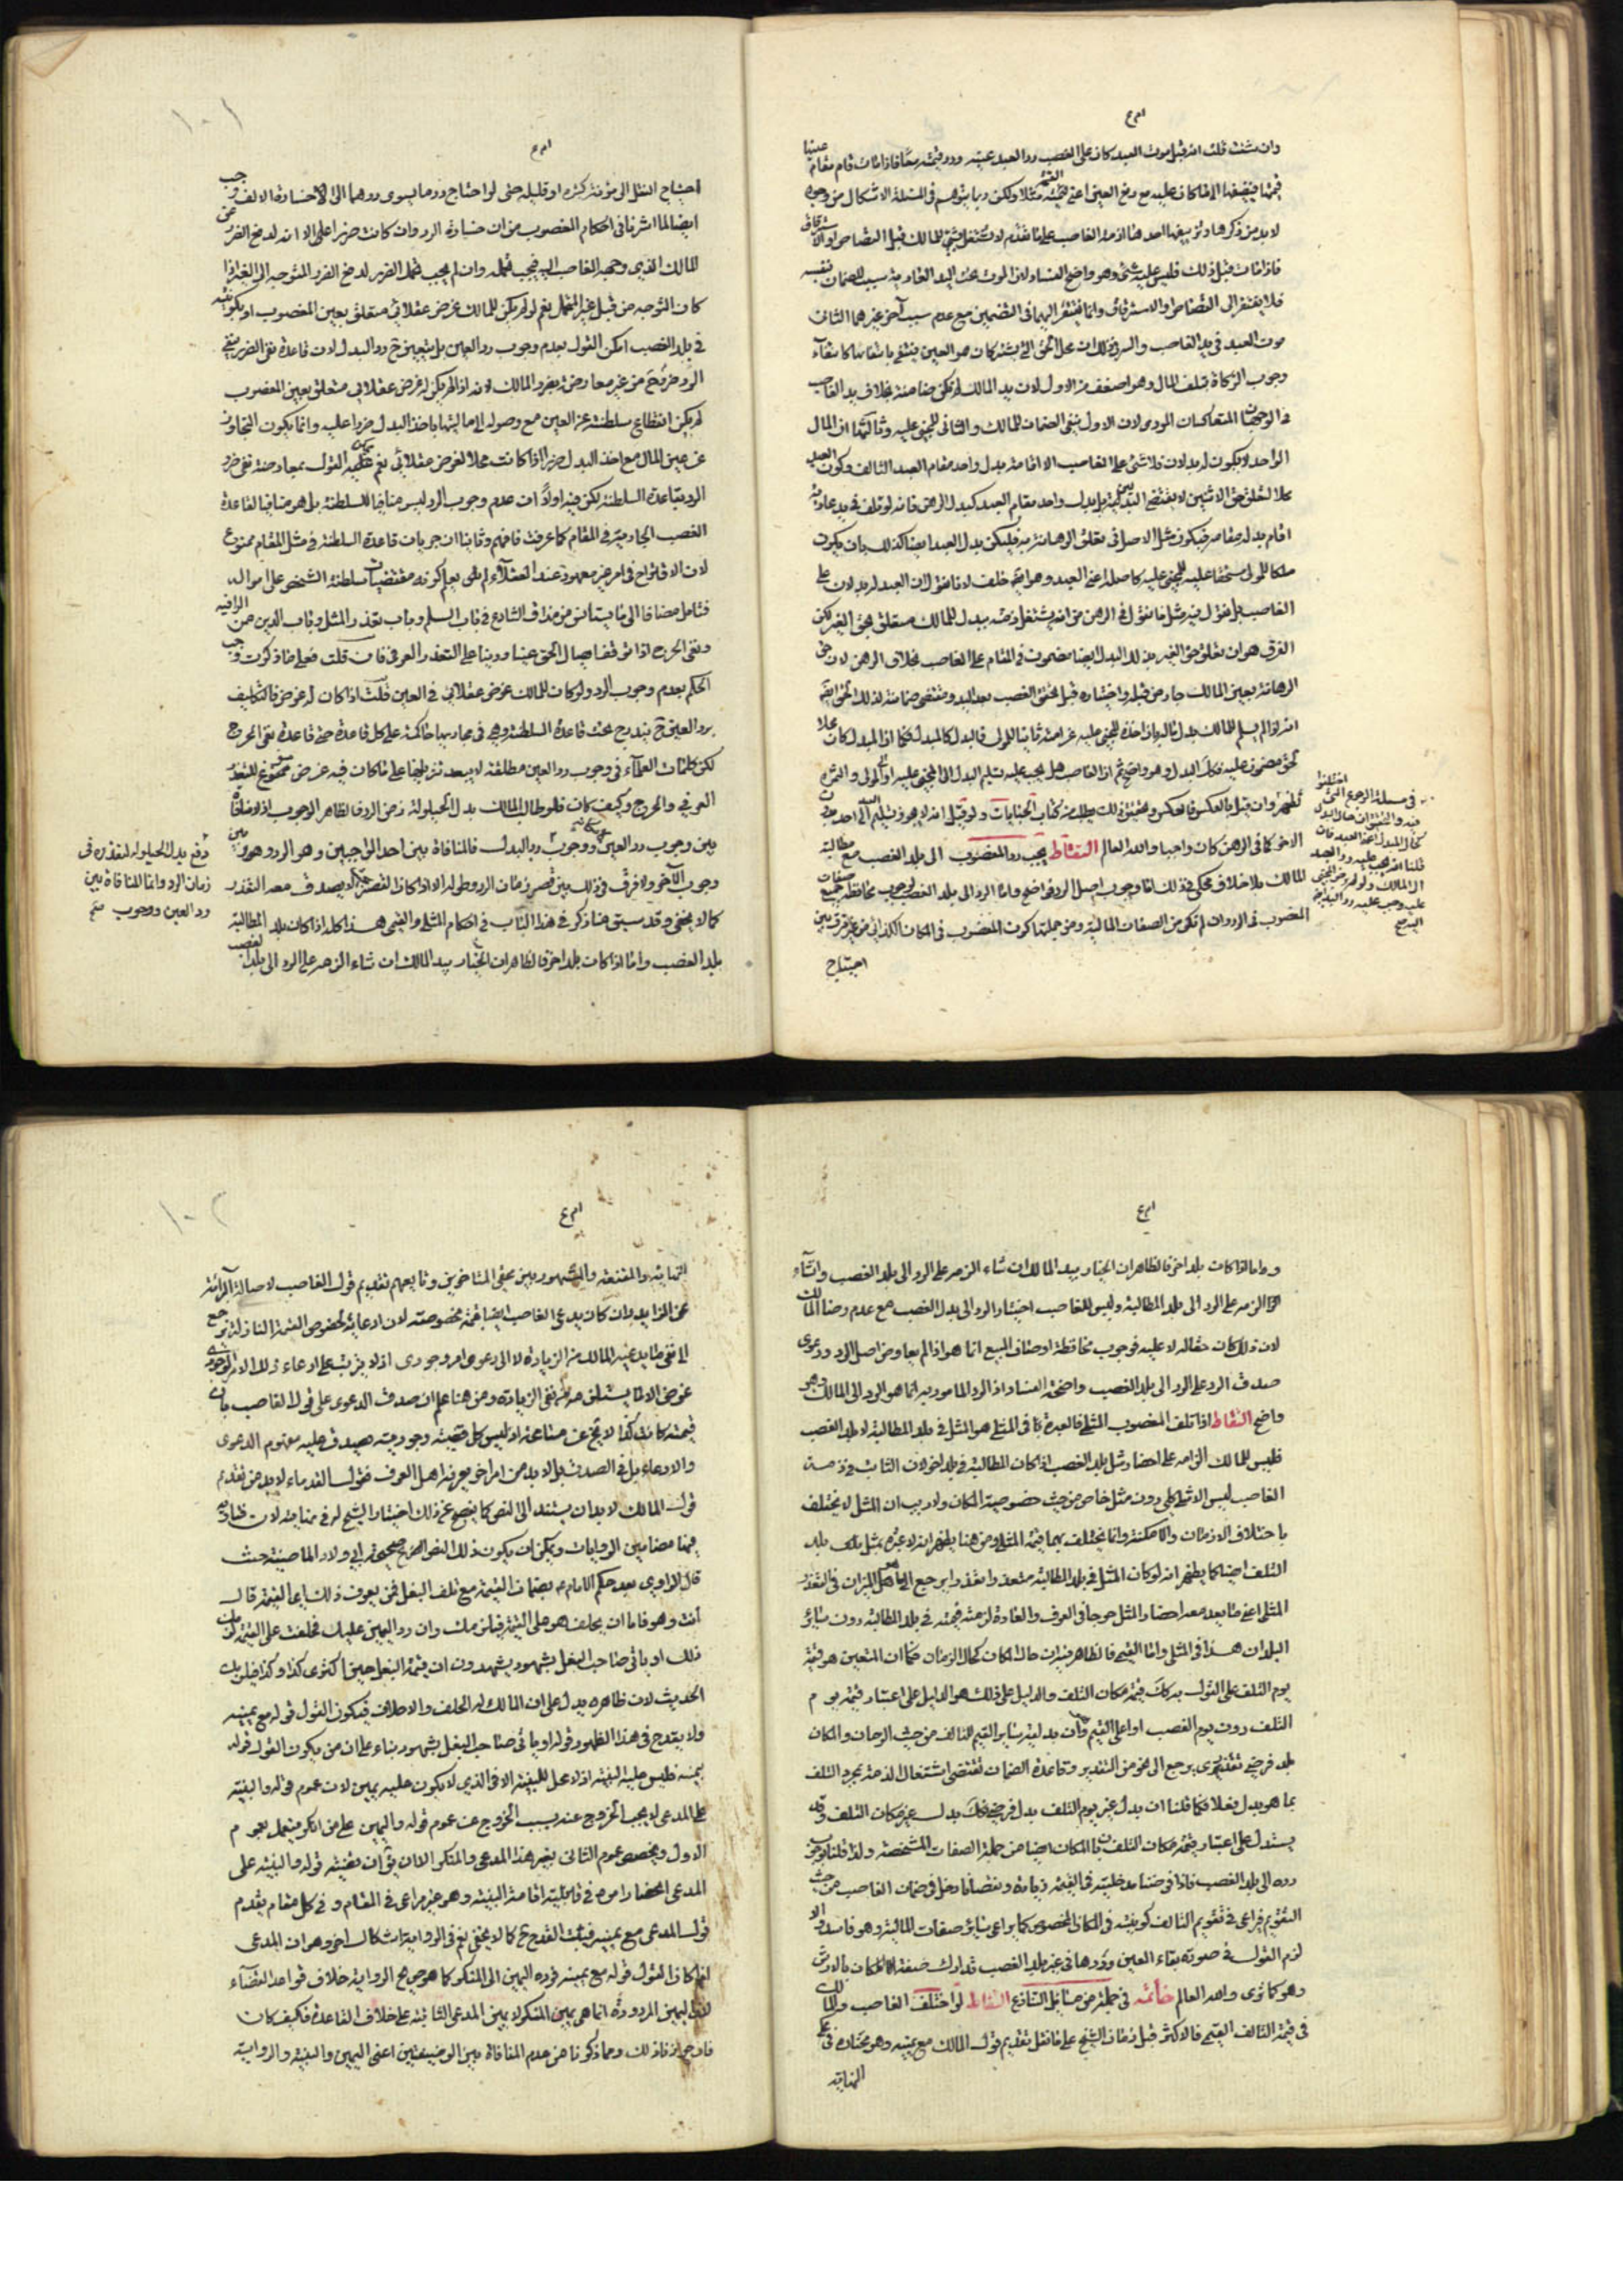 وان شئت قلت انه قبل موت العبد كان على الغصب رد العبد عينه ورد قيمته معًا فاذا مات قام مقام عينها
قيمتها فينضمّ الى ما كان عليه مع دفع العين اعنى القيمة مثلا ولكن ربما يتوهم فى المسئلة الاشكال من وجوه
لا بد من ذكرها وتزييفها احدها ان ذمة الغاصب على ما تقدم لا تشتغل بشئ للمالك قبل القصاص او الاسترقاق
فاذا مات قبل ذلك فليس عليه شئ وهو واضح الفساد لان الموت تحت اليد العادية سبب للضمان بنفسه
فلا يفتقر الى القصاص او الاسترقاق وانما يفتقر اليهما فى التضمين مع عدم سبب آخر غيرهما الثانى
موت العبد فى يد الغاصب والسر فى ذلك ان محل الحق الذى يشبه كان هو العين ينتفى بانتفائها كانتفاء
وجوب الزكاة بتلف المال وهو اضعف من الاول لان يد المالك لم تكن ضامنة بخلاف يد الغاصب
فى الوجهان المتعاكسان المودى لان الاول ينفى الضمان للمالك والثانى للمجنى عليه وثالثها ان المال
الواحد لا يكون له بدلان فلا شئ على الغاصب الا اقامة بدل واحد مقام العبد التالف وكون العبد
محلا لتعلق حق الاثنين لا يقتضى البدلين بل بدل واحد مقام العبد كبدل الرهن فانه لو تلف فى يد عادية
اقام بدله مقامه فيكون مثل الاصل فى تعلق الرهانة به فليكن بدل العبد ايضا كذلك بان يكون
ملكا للمولى مستحقا عليه للمجنى عليه كاصله اعنى العبد وهو ايضا خلف لانا نقول ان العبد له بدلان على
الغاصب بل نقول فيه مثل ما نقول فى الرهن من انه يشتغل ذمته ببدل للمالك متعلق بحق الغير لكن
الفرق هو ان تعلق حق الغير بذلك البدل ايضا مضمون فى المقام على الغاصب بخلاف الرهن لان حق
الرهانة بعين المالك جاء من قبله واختياره قبل تحقق الغصب بعد اليد ومقتضى ضمانه لذلك الحق ايضا
انه لو لم يسلم للمالك بدل ماله واذا اخذه المجنى عليه غرامة ثانيا للمولى فالبدل كالمبدل فكما ان المبدل كان محلا
لحق مضمون عليه فكذا البدل وهو واضح ثم ان الغاصب هل يجب عليه تسليم البدل الى المجنى عليه او الى المولى والثمرة
تظهر وان قيل بالعكس فالعكس وتحقيق ذلك يطلب من كتاب الجنايات ولو قيل انه لا يجوز تسليم الى احد بدون
الاخر كما فى الرهن كان واجبا والله العالم التقاط يجب رد المغصوب الى بلد الغصب مع مطالبة
المالك بلا خلاف محكى فى ذلك اما وجوب اصل الرد فواضح واما الرد الى بلد الغصب فلوجوب محافظة جميع صفات
المغصوب فى الرد وان لم تكن من الصفات المالية ومن جملتها كون المغصوب فى المكان الكذائى من غير فرق بين
احتياج
فى مسئلة الرجوع التى اختلفوا
فيه والتحقيق ان حال البدل
كحال المبدل اعنى العبد فان
قلنا انه يجب عليه رد العبد
الى المالك ولو لم يرض المجنى
عليه وجب عليه رد البدل ايضا
اليه صح
احتياج النقل الى مؤنة كثيرة او قليلة حتى لو احتاج رد ما يسوى درهما الى الاخسارة الالف وجب
ايضا لما اشرنا فى احكام المغصوب من ان خسارة الرد وان كانت ضررا على الا انه لدفع الضرر عن
المالك الذى وجهه الغاصب اليه فيجب تحمله وان لم يجب تحمل الضرر لدفع الضرر المتوجه الى الغير اذا
كان التوجه من قبل غير المتحمل نعم لو لم يكن للمالك غرض عقلائى متعلق بعين المغصوب او بكونه
فى بلد الغصب امكن القول بعدم وجوب رد العين بل يتعين ح رد البدل لان قاعدة نفى الضرر ينفى
الرد ضرر ح من غير معارضة بضرر المالك لانه اذا لم يكن له غرض عقلائى متعلق بعين المغصوب
لم يكن انقطاع سلطنته عن العين مع وصوله الى ماليتها باخذ البدل ضررا عليه وانما يكون التجاوز
عن عين المال مع اخذ البدل ضررا اذا كانت محلا لغرض عقلائى نعم يمكن القول بمعارضة نفى ضرر
الرد بقاعدة السلطنة لكن فيه اولاً ان عدم وجوب الرد ليس منافيا للسلطنة بل هو مناف لقاعدة
الغصب الجارية فى المقام كما عرفت فافهم وثانيا ان جريان قاعدة السلطنة فى مثل المقام ممنوع
لان الاقتراح فى امر غير معهودة عند العقلاء لم يعلم كونه مقتضيات سلطنة الشخص على امواله
فتامل مضافا الى ما يستانس من مذاق الشارع فى باب السلم وباب تعذر المثل وباب الدين من الرافيه
ونفى الحرج اذا توقف ايصال الحق عينا ودينا على التعذر العرفى فان قلت فعلى ما ذكرت وجب
الحكم بعدم وجوب الرد ولو كان للمالك غرض عقلائى فى العين قلت اذا كان له غرض فالتكليف
برد العين ح يندرج تحت قاعدة السلطنة وهى فى مجاريها حاكمة على كل قاعدة حتى قاعدة نفى الحرج
لكن كلمات العلماء فى وجوب رد العين مطلقة لا يبعد تنزيلها على ما كان فيه غرض مسوغ للتعذر
العرفى والحرج وكيف كان فلو طال المالك بدل الحيلولة زمن الرد فالظاهر الوجوب اذ لا منافاة
بين وجوب رد العين ووجوب رد البدل فالمنافاة بين احد الواجبين وهو الرد وهو بين
وجوب الآخر ولا فرق فى ذلك بين قصر زمان الرد وطوله الا اذا كان القصر جدا لا يصدق معه التعذر
كما لا يخفى وقد سبق منا ذكر فى هذا الباب فى احكام المثلى والقيمى هذا كله اذا كان بلد المطالبة
بلد الغصب واما اذا كان بلد اخر فالظاهر ان الخيار بيد المالك ان شاء الزمه على الرد الى بلد الغصب
دفع بدل الحيلولة للتعذر فى
زمان الرد وانما المنافاة بين
رد العين ووجوب صح
١٠١
واما اذا كان بلد اخر فالظاهر ان الخيار بيد المالك ان شاء الزمه على الرد الى بلد الغصب وان شاء
الزمه على الرد الى بلد المطالبة وليس للغاصب اختيار الرد الى بلد الغصب مع عدم رضا المالك
لان ذلك كان حقا له لا عليه فوجوب محافظة اوصاف المبيع انما هو اذا لم يعاوض اصل الرد ودعوى
صدق الرد على الرد الى بلد الغصب واضحة الفساد اذ الرد المامور به انما هو الرد الى المالك وهو
واضح التقاط اذا تلف المغصوب المثلى فالعبرة كما فى المثلى هو المثل فى بلد المطالبة لا بلد الغصب
فليس للمالك الزامه على احضار مثل بلد الغصب اذا كان المطالبة فى بلد اخر لان الثابت فى ذمة
الغاصب ليس الا مثل كلى دون مثل خاص من حيث خصوصية المكان ولا ريب ان المثل لا يختلف
باختلاف الازمان والامكنة وانما يختلف بهما قيمة المثل ومن هنا يظهر انه لا عبرة بمثل بلد
التلف ايضا كما يظهر انه لو كان المثل فى بلد المطالبة متعذرا يرجع الى ما هو الميزان فى التعذر
المثلى اعنى ما بعد معه احضار المثل حرجا فى العرف والعادة لزمته قيمته فى بلد المطالبة دون سائر
البلدان هذا فى المثلى واما القيمى فالظاهر فيه ان حال المكان كحال الزمان فكما ان المتعين هو قيمة
يوم التلف على القول به كك قيمة مكان التلف والدليل على ذلك هو الدليل على اعتبار قيمة يوم
التلف دون يوم الغصب او اعلى القيم فان بدلية سائر القيم للتالف من حيث الزمان والمكان
بدل فرضى تقديرى يرجع الى نحو من التقدير وقاعدة الضمان تقتضى اشتغال الذمة بمجرد التلف
بما هو بدل فعلا فكما قلنا ان بدل غير يوم التلف بدل فرضى فكك بدل غير مكان التلف وقد
يستدل على اعتبار قيمة مكان التلف بان المكان ايضا من جملة الصفات المشخصة ولذا قلنا بوجوب
رده الى بلد الغصب فاذا فرضنا مدخليته فى القيمة زيادة ونقصانا دخل فى ضمان الغاصب من حيث
التقويم فيراعى فى تقويم التالف كونه فى المكان المخصوص كما يراعى سائر صفات المالية وهو فاسد والا
لزم القول فى صورة بقاء العين وردها فى غير بلد الغصب تدارك صفة المكان بالارش
وهو كما ترى والله العالم خاتمة فى جملة من مسائل التنازع التقاط لو اختلف الغاصب والمالك
فى قيمة التالف القيمى فالاكثر قبل زمان الشيخ على ما نقل تقديم قول المالك مع يمينه وهو مختاره فى
النهاية
النهاية والمقنعة والمشهور بين محققى المتاخرين وتابعيهم تقديم قول الغاصب لاصالة البرائة
عن الزايد وان كان يدعى الغاصب ايضا قيمة مخصوصة لان ادعائه لخصوص القيمة النازلة يرجع
الى نفى ما يدعيه المالك من الزيادة لا الى دعوى امر وجودى اذ لا يترتب على ادعاء ذلك الامر الوجودى
غرض الا ما يستلزمه من نفى الزيادة ومن هنا علم ان صدق الدعوى على قول الغاصب بان
قيمته كانت كذا لا يخ عن مسامحة اذ ليس كل قضية وجودية يصدق عليه مفهوم الدعوى
والادعاء بل فى الصدق بل لا بد من امر اخر يعرفه اهل العرف فقول القدماء لا بد من تقديم
قول المالك لا بد ان يستند الى النص كما يفصح عن ذلك اختيار الشيخ له فى النهاية لان عباراته
فيها مضامين الروايات ويمكن ان يكون ذلك النص الصحيح صحيحة ابى ولاد الماضية حيث
قال الراوى بعد حكم الامام ع بضمان القيمة مع تلف البغل فمن يعرف ذلك ايها القيمة قال
أنت وهو فاما ان يحلف هو على القيمة فيلزمك وان رد اليمين عليك فحلفت على القيمة لزمك
ذلك او ياتى صاحب البغل بشهود يشهدون ان قيمة البغل حين اكترى كذا وكذا فيلزمك
الحديث لان ظاهره يدل على ان المالك له الحلف والاحلاف فيكون القول قوله مع يمينه
ولا يقدح فى هذا الظهور قوله او ياتى صاحب البغل بشهود بناء على ان من يكون القول قوله
بيمينه فليس عليه البينة اذ لا محل للبينة الا فى الذى لا يكون عليه يمين لان عموم قوله والبينة
على المدعى لا يجب الخروج عنه بسبب الخروج عن عموم قوله واليمين على من انكر فيعمل بعموم
الاول ويخصص عموم الثانى بغير هذا المدعى والمنكر الا ان يقال ان قضية قوله والبينة على
المدعى انحصار امره فى قابلية اقامة البينة وهو غير مراعى فى المقام وفى كل مقام يقدم
قول المدعى مع يمينه فيثبت القدح كما لا يخفى نعم فى الرواية اشكال اخر وهو ان المدعى
اذا كان القول قوله مع يمينه فرده اليمين الى المنكر كما هو صريح الرواية خلاف قواعد القضاء
لان اليمين المردودة انما هى يمين المنكر لا يمين المدعى الثابتة على خلاف القاعدة فكيف كان
فلا جواز فى ذلك ومما ذكرنا من عدم المنافاة بين الوظيفتين اعنى اليمين والبينة والرواية
١٠٢